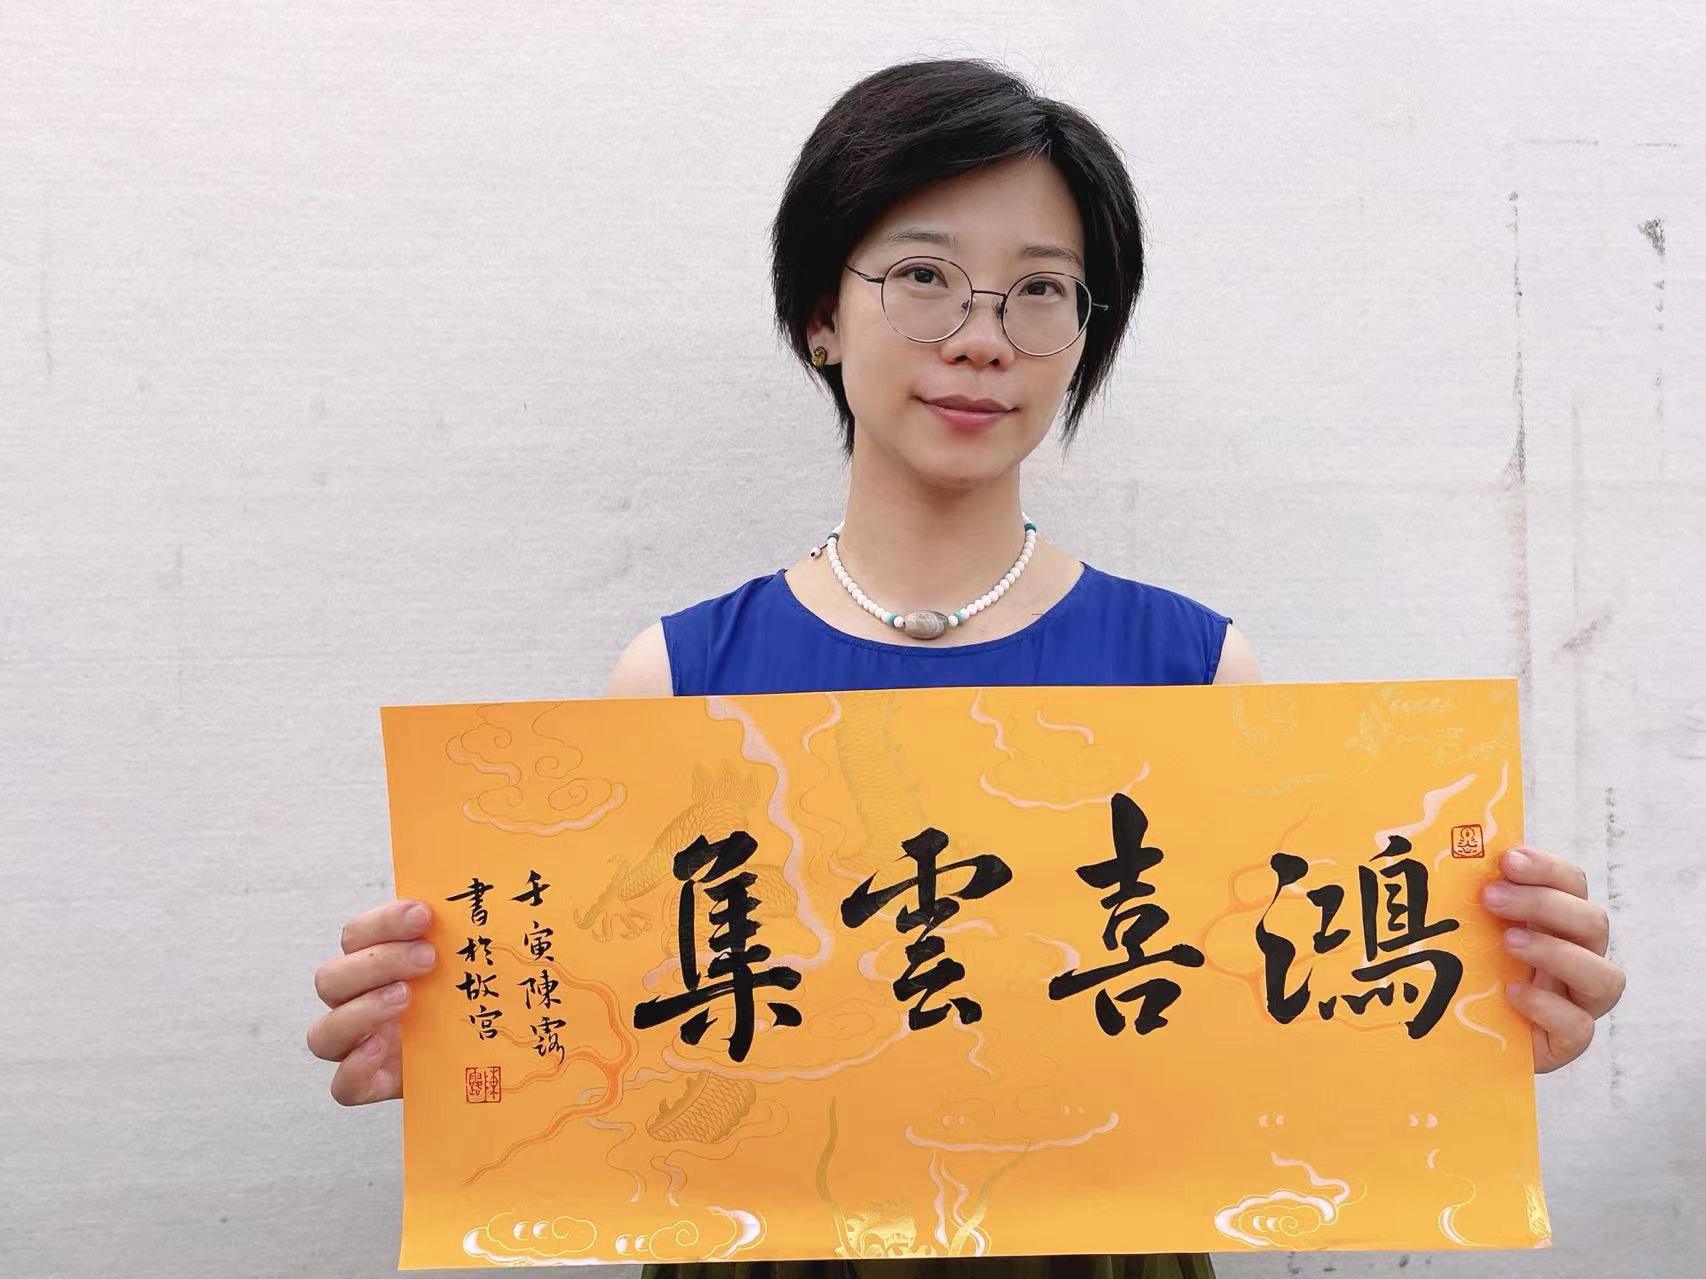 鴻喜雲集
壬寅陳露
書於故宮
陳露